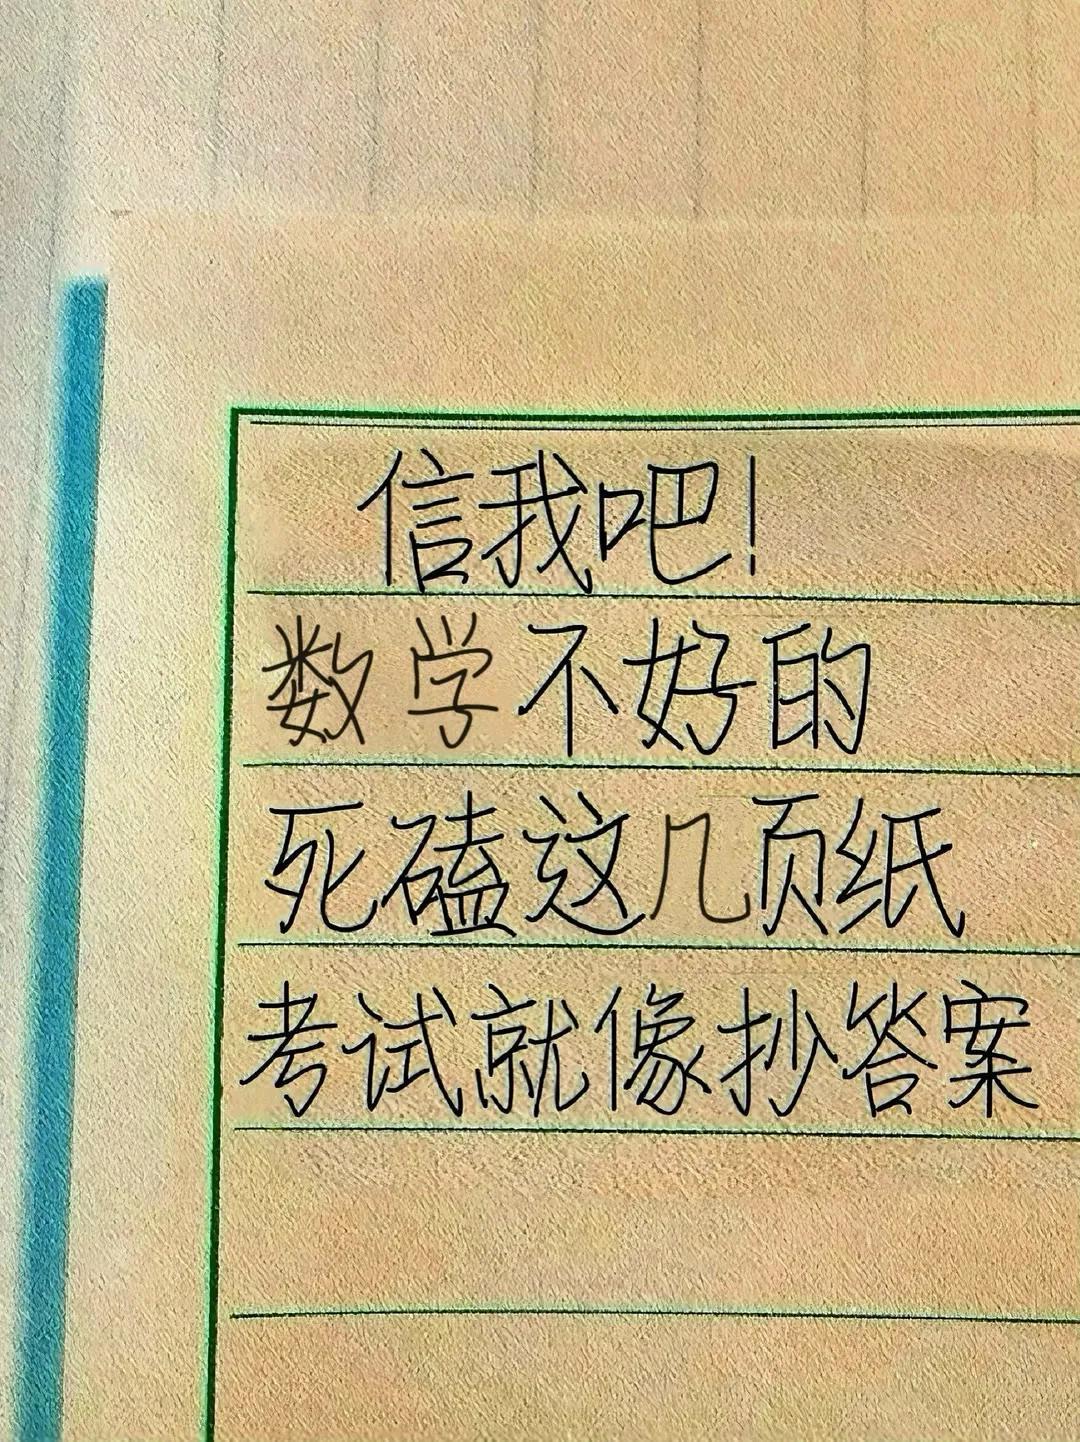 信我吧!
数学不好的
死磕这几页纸
考试就像抄答案